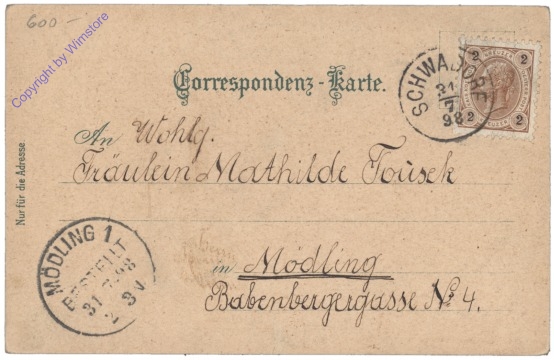 600.-
Copyright by Wimstore
Correspondenz-Karte.
2 KREUZER 2
2 2
SCHWADORF
31
7
98
An Wohlg.
Fräulein Mathilde Tousek
Nur für die Adresse.
in Mödling
Babenbergergasse No 4.
MÖDLING 1
BESTELLT
31 7 98